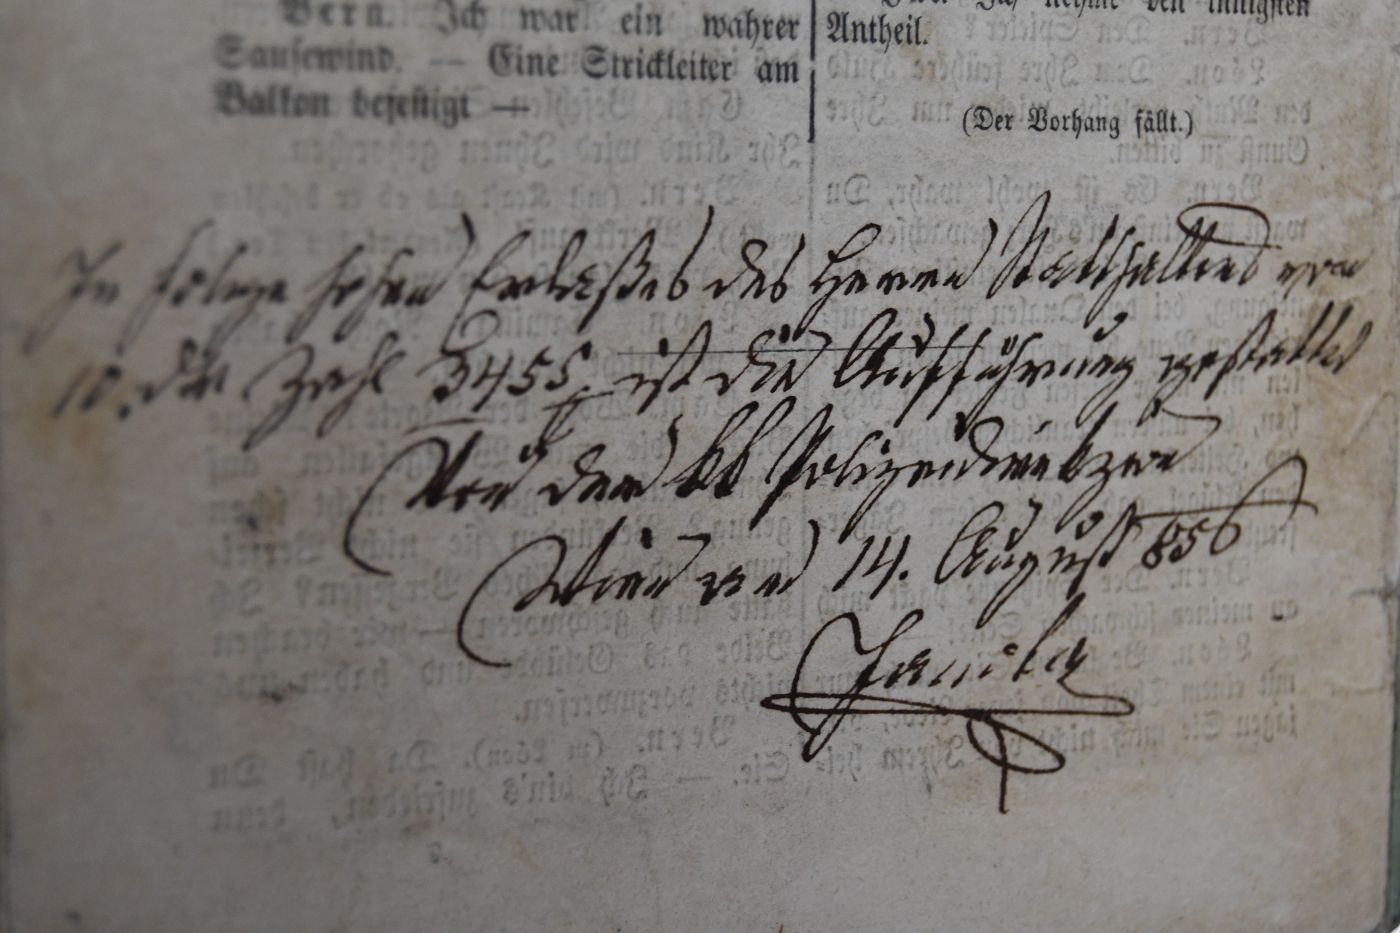 Bern. Ich war ein wahrer
Sausewind. — Eine Strickleiter am
Balkon befestigt —
Antheil.
(Der Vorhang fällt.)
In Folge hohen Erlaßes des Herrn Statthalters vom
10. d. M. Zahl 3455 ist die Aufführung gestattet
Von der kk Polizeidirektion
Wien am 14. August 856